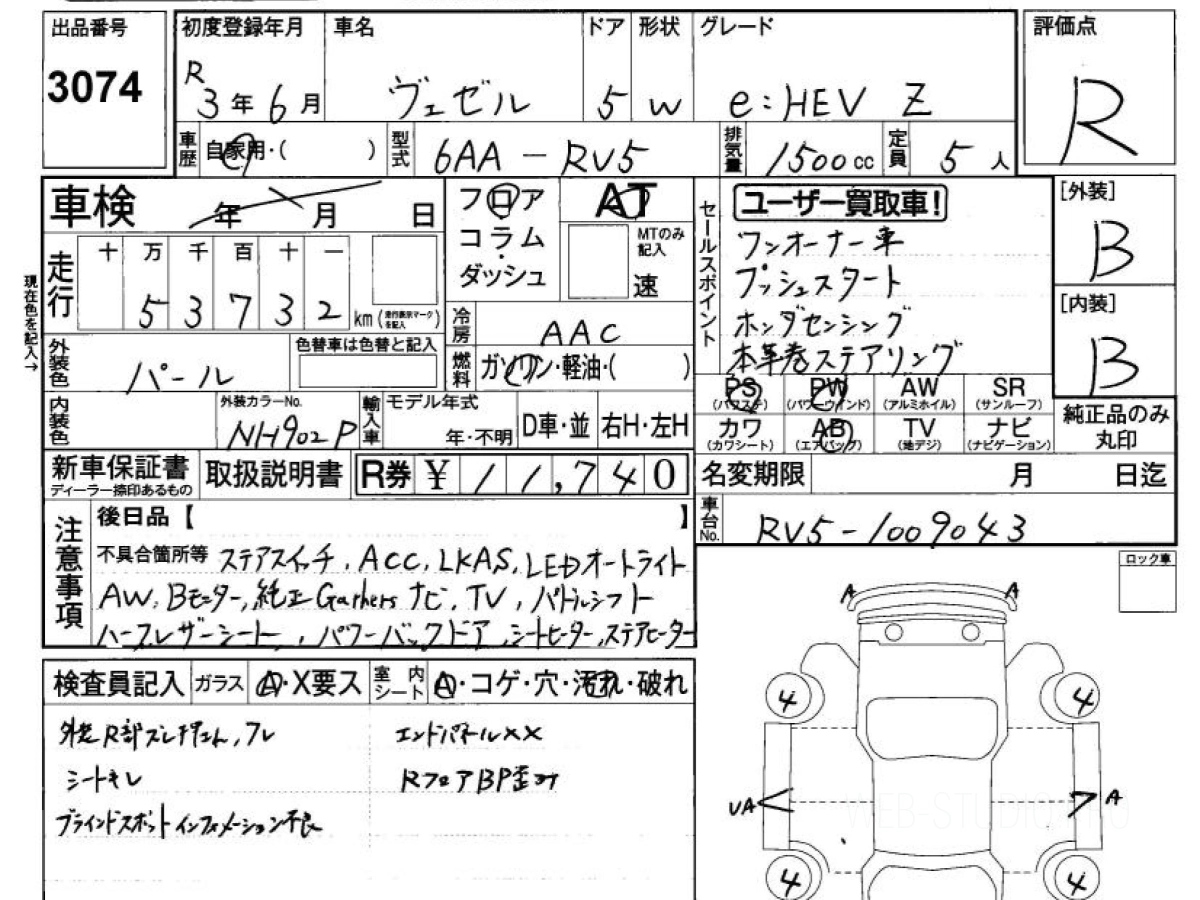 出品番号 初度登録年月 車名 ドア 形状 グレード 評価点
3074 R 3年 6月 ヴェゼル 5 W e:HEV Z R
車歴 自家用・( ) 型式 6AA-RV5 排気量 1500cc 定員 5人
車検 年 月 日
フロア コラム・ダッシュ
AT
MTのみ記入 速
セールスポイント
ユーザー買取車!
ワンオーナー車
プッシュスタート
ホンダセンシング
本革巻ステアリング
[外装] B
[内装] B
現在色を記入→
走行 十 万 千 百 十 一
5 3 7 3 2 km (走行表示マークを記入)
冷房 AAC
外装色 パール 色替車は色替と記入
燃料 ガソリン・軽油・( )
PS (パワステ) PW (パワーウインド) AW (アルミホイル) SR (サンルーフ)
カワ (カワシート) AB (エアバッグ) TV (地デジ) ナビ (ナビゲーション)
純正品のみ丸印
内装色 外装カラーNo. NH902P 輸入車 モデル年式 年・不明 D車・並 右H・左H
新車保証書 ディーラー捺印あるもの 取扱説明書 R券 ¥11,740
名変期限 月 日迄
車台No. RV5-1009043
注意事項
後日品【 】
不具合箇所等 ステアスイッチ, ACC, LKAS, LEDオートライト
AW, Bモニター, 純正Gathersナビ, TV, パドルシフト
ハーフレザーシート, パワーバックドア, シートヒーター, ステアヒーター
ロック車
検査員記入 ガラス A・X要ス 室内シート A・コゲ・穴・汚れ・破れ
外装R部ズレ, フレ
エンドパネルXX
シートキレ
RフロアBP歪み
ブラインドスポットインフォメーション不良
A A
4 4
UA A
4 4
WEB-STUDIO.PRO